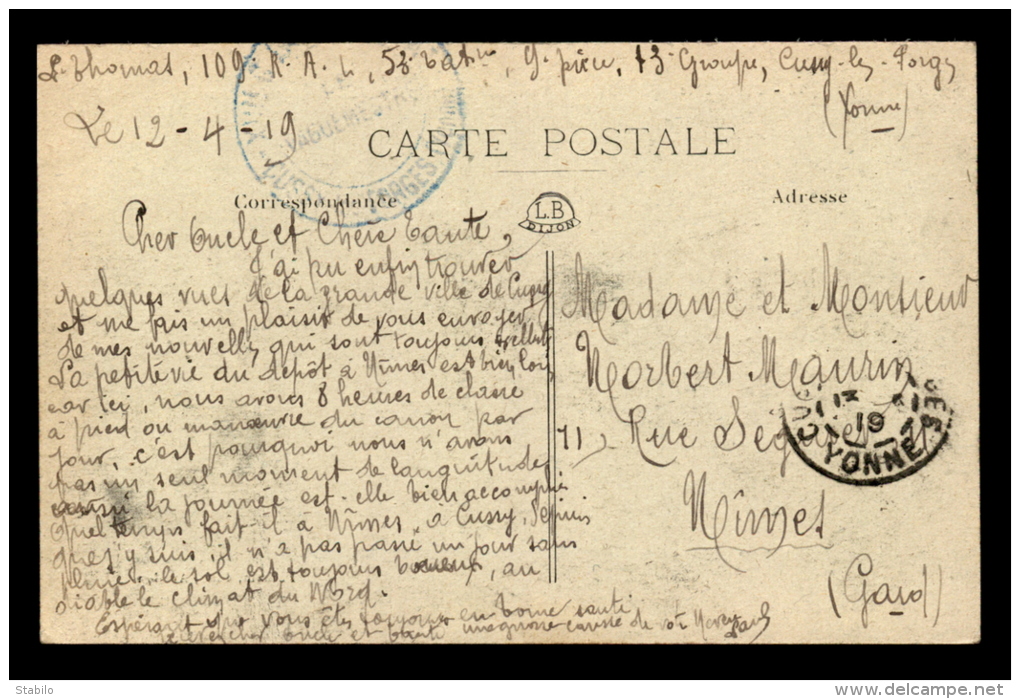 P. Thomas, 109e R.A.L, 53e batie, 9e pièce, 13e Groupe, Cussy-les-Forges
(Yonne)
Le 12-4-19
CARTE POSTALE
Correspondance
Adresse
L.B
DIJON
Cher Oncle et Chère Tante,
J'ai pu enfin trouver
quelques vues de la grande ville de Cussy
et me fais un plaisir de vous envoyer
de mes nouvelles qui sont toujours
La petite vie du dépôt à Nîmes est bien loin
car ici, nous avons 8 heures de classe
à pied ou manœuvre du canon par
jour, c'est pourquoi nous n'avons
pas un seul moment de languitude
aussi la journée est-elle bien accomplie
Quel temps fait-il à Nîmes, à Cussy, depuis
que j'y suis, il n'a pas passé un jour sans
pluie, le sol est toujours boueux, au
diable le climat du Nord.
Espérant que vous êtes toujours en bonne santé
cher Oncle et tante une grosse caresse de votre Neveu Paul
Madame et Monsieur
Norbert Maurin
11, Rue
Nîmes
(Gard)
19
YONNE
VAGUEMESTRE
CUSSY FORGES
Stabilo
www.delcampe.net